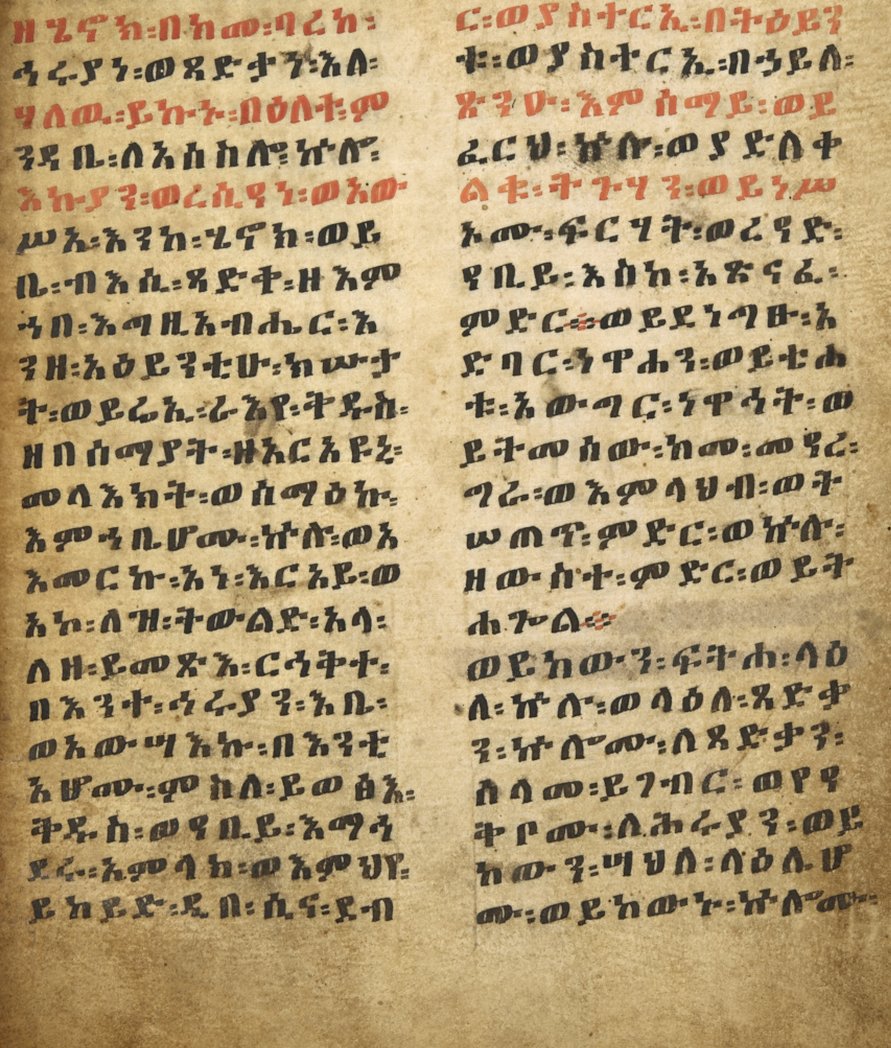 ዘሄኖክ፡በከመ፡ባረከ፡
ኅሩያነ፡ወጻድቃን፡እለ፡
ሃለዉ፡ይኩኑ፡በዕለት፡ም
ንዳቤ፡ለአሰስሎ፡ኵሎ፡
እኩያን፡ወረሲዓነ፡ወአው
ሥአ፡እንከ፡ሄኖክ፡ወይ
ቤ፡ብእሲ፡ጻድቅ፡ዘእም
ኀበ፡እግዚአብሔር፡እ
ንዘ፡አዕይንቲሁ፡ክሡታ
ት፡ወይሬኢ፡ራእየ፡ቅዱስ፡
ዘበሰማያት፡ዘአርአዩኒ፡
መላእክት፡ወሰማዕኩ፡
እምኀቤሆሙ፡ኵሉ፡ወአ
እመርኩ፡አነ፡እርአይ፡ወ
አኮ፡ለዝ፡ትውልድ፡አላ፡
ለዘ፡ይመጽእ፡ርኅቅተ፡
በእንተ፡ኅሩያን፡እቤ፡
ወአውሣእኩ፡በእንቲ
አሆሙ፡ምስለ፡ይወፅእ፡
ቅዱስ፡ወዓቢይ፡እማኅ
ደሩ፡አምላክ፡ወእምህየ፡
ይከይድ፡ዲበ፡ሲና፡ደብ
ር፡ወያስተርኢ፡በትዕይን
ቱ፡ወያስተርኢ፡በኃይለ፡
ጽንዑ፡እምሰማይ፡ወይ
ፈርህ፡ኵሉ፡ወያድለቀ
ልቁ፡ትጉሃን፡ወይነሥ
አሙ፡ፍርሃት፡ወረዓድ፡
ዓቢይ፡እስከ፡አጽናፈ፡
ምድር፨ወይደነግፁ፡አ
ድባር፡ነዋሐን፡ወይቴሐ
ቱ፡አውግር፡ነዋኅት፡ወ
ይትመሰው፡ከመ፡መዓረ፡
ግራ፡ወእምላህብ፡ወት
ሠጠጥ፡ምድር፡ወኵሉ፡
ዘውስተ፡ምድር፡ወይት
ሐጐል፨
ወይከውን፡ፍትሐ፡ላዕ
ለ፡ኵሉ፡ወላዕለ፡ጻድቃ
ን፡ኵሎሙ፡ለጻድቃን፡
ሰላመ፡ይገብር፡ወየዓ
ቅቦሙ፡ለሕሩያን፡ወይ
ከውን፡ሣህለ፡ላዕሌሆ
ሙ፡ወይከውኑ፡ኵሎሙ፡